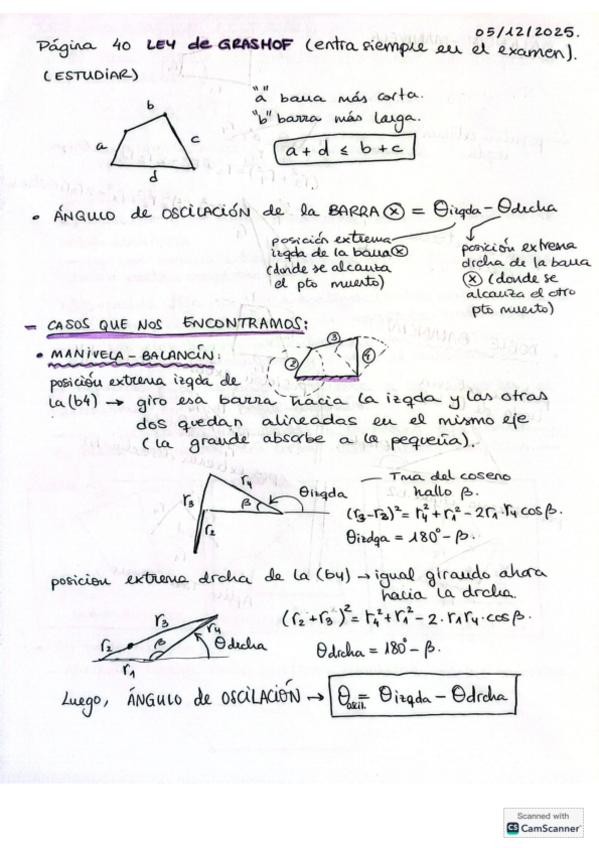 05/12/2025.
Página 40 LEY de GRASHOF (entra siempre en el examen).
(ESTUDIAR)
a b c d
"a" barra más corta.
"b" barra más larga.
a + d ≤ b + c
• ÁNGULO de OSCILACIÓN de la BARRA Ⓧ = θizqda - θdrcha
posición extrema
izqda de la barra Ⓧ
(donde se alcanza
el pto muerto)
posición extrema
drcha de la barra
Ⓧ (donde se
alcanza el otro
pto muerto)
- CASOS QUE NOS ENCONTRAMOS:
• MANIVELA - BALANCÍN:
② ③ ④
posición extrema izqda de
la (b4) → giro esa barra hacia la izqda y las otras
dos quedan alineadas en el mismo eje
(la grande absorbe a la pequeña).
r3 r4 r2 β θizqda
— Tma del coseno
hallo β.
(r3-r2)² = r4² + r1² - 2r1·r4 cosβ.
θizdqa = 180° - β.
posicion extrema drcha de la (b4) → igual girando ahora
hacia la drcha.
r2 r3 r4 β r1 θdrcha
(r2+r3)² = r4² + r1² - 2·r1r4·cosβ.
θdrcha = 180° - β.
Luego, ÁNGULO de OSCILACIÓN → θoscil. = θizqda - θdrcha
Scanned with
CS CamScanner